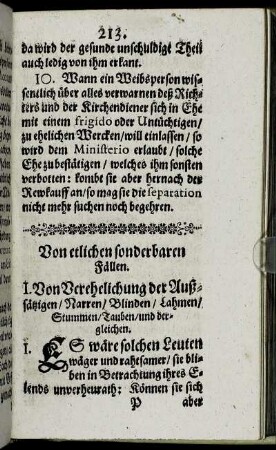 213.
da wird der gesunde unschuldige Theil
auch ledig von ihm erkant.
10. Wann ein Weibsperson wis-
sentlich über alles verwarnen deß Rich-
ters und der Kirchendiener sich in Ehe
mit einem frigido oder Untüchtigen/
zu ehelichen Wercken/will einlassen/ so
wird dem Ministerio erlaubt / solche
Ehe zu bestätigen / welches ihm sonsten
verbotten: kombt sie aber hernach der
Rewkauff an/ so mag sie die separation
nicht mehr suchen noch begehren.
Von etlichen sonderbaren
Fällen.
I. Von Verehelichung der Auß-
sätzigen / Narren/ Blinden / Lahmen/
Stummen/ Tauben/ und der-
gleichen.
1. ES wäre solchen Leuten
wäger und rahtsamer/ sie bli-
ben in Betrachtung ihres E-
lends unverheurath: Können sie sich
P aber